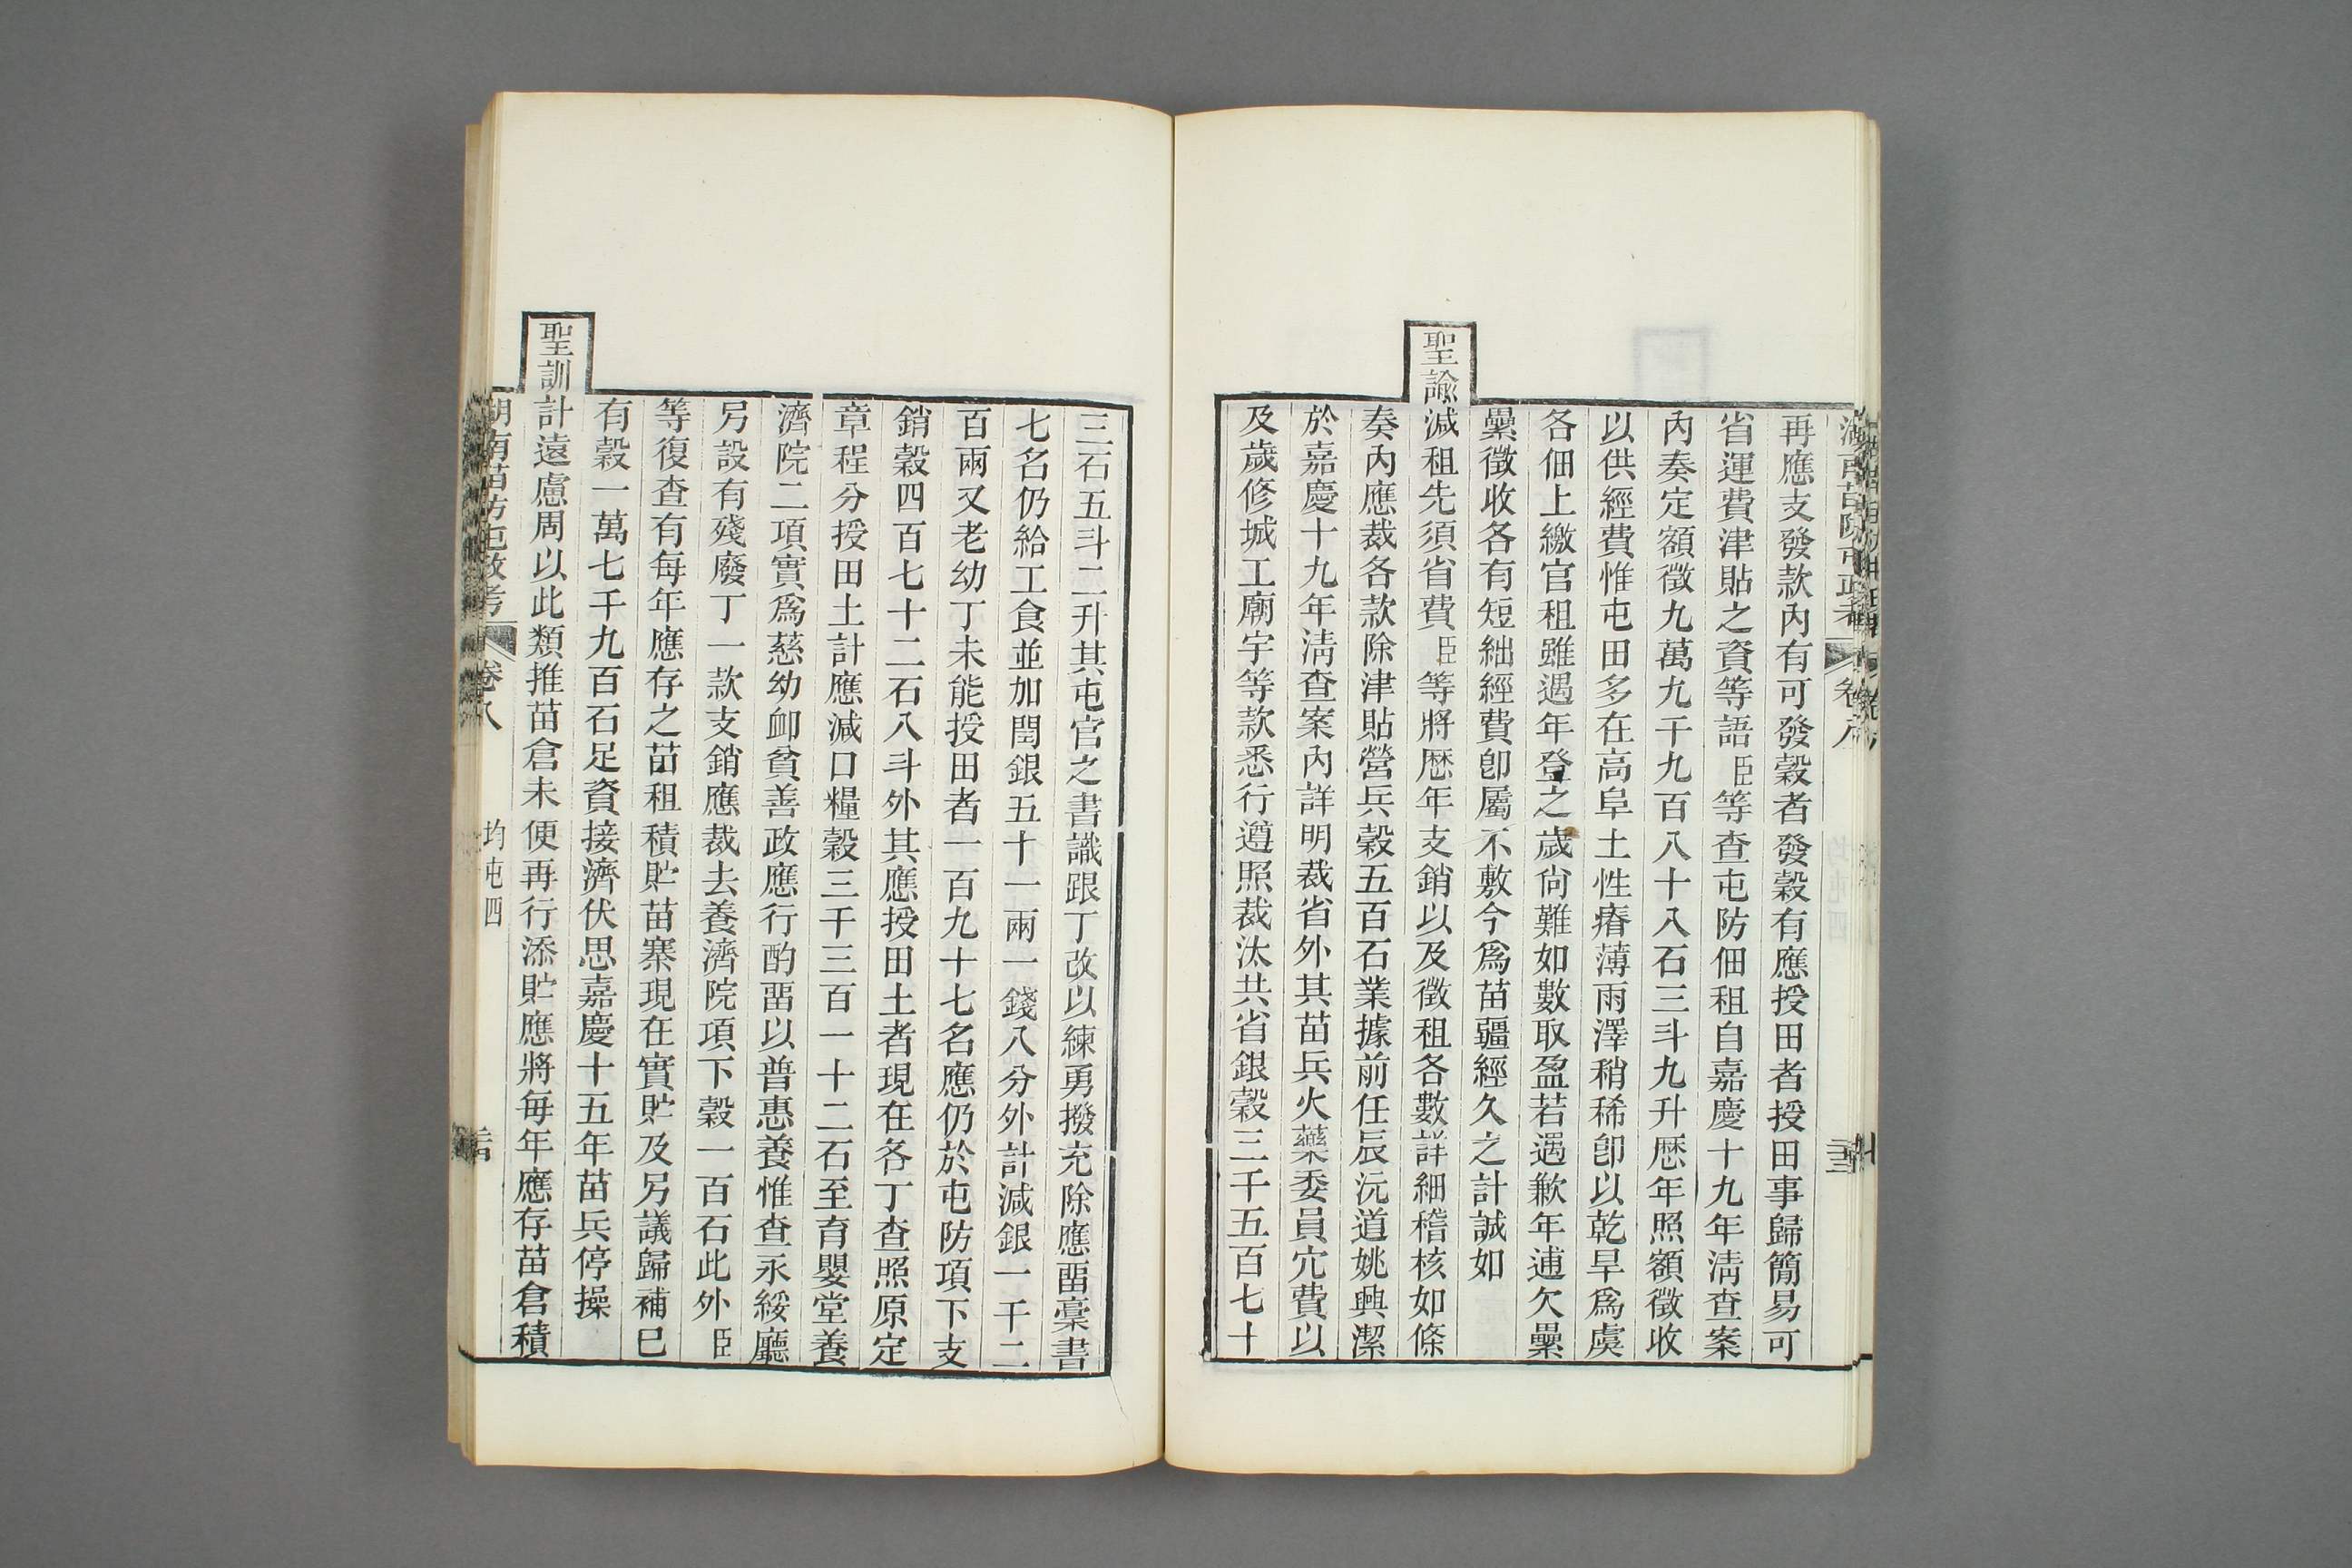 再應支發款內有可發穀者發穀有應授田者授田事歸簡易可
省運費津貼之資等語臣等查屯防佃租自嘉慶十九年淸查案
內奏定額徵九萬九千九百八十八石三斗九升歷年照額徵收
以供經費惟屯田多在高阜土性瘠薄雨澤稍稀卽以乾旱爲虞
各佃上繳官租雖遇年登之歲尙難如數取盈若遇歉年逋欠纍
纍徵收各有短絀經費卽屬不敷今爲苗疆經久之計誠如
聖諭減租先須省費臣等將歷年支銷以及徵租各數詳細稽核如條
奏內應裁各款除津貼營兵穀五百石業據前任辰沅道姚興潔
於嘉慶十九年淸查案內詳明裁省外其苗兵火藥委員冗費以
及歲修城工廟宇等款悉行遵照裁汰共省銀穀三千五百七十
三石五斗二升其屯官之書識跟丁改以練勇撥充除應畱稾書
七名仍給工食並加閏銀五十一兩一錢八分外計減銀一千二
百兩又老幼丁未能授田者一百九十七名應仍於屯防項下支
銷穀四百七十二石八斗外其應授田土者現在各丁查照原定
章程分授田土計應減口糧穀三千三百一十二石至育嬰堂養
濟院二項實爲慈幼卹貧善政應行酌畱以普惠養惟查永綏廳
另設有殘廢丁一款支銷應裁去養濟院項下穀一百石此外臣
等復查有每年應存之苗租積貯苗寨現在實貯及另議歸補已
有穀一萬七千九百石足資接濟伏思嘉慶十五年苗兵停操
聖訓計遠慮周以此類推苗倉未便再行添貯應將每年應存苗倉積
湖南苗防屯政考 卷八 均屯四